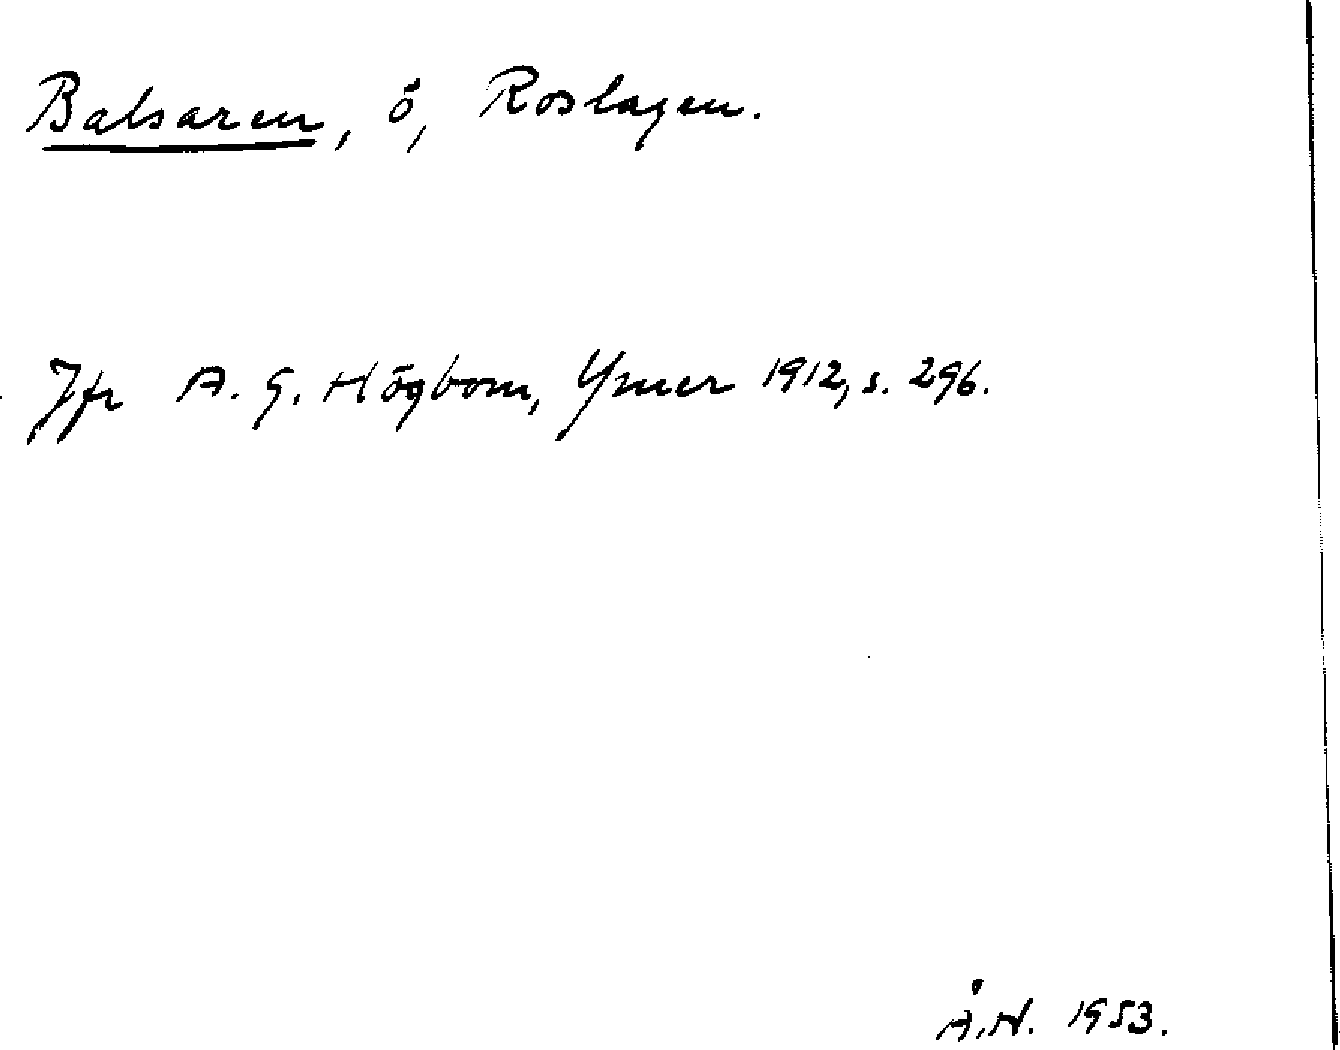 Balsaren, ö, Roslagen.
Jfr A. G. Högbom, Ymer 1912, s. 296.
Å.N. 1953.